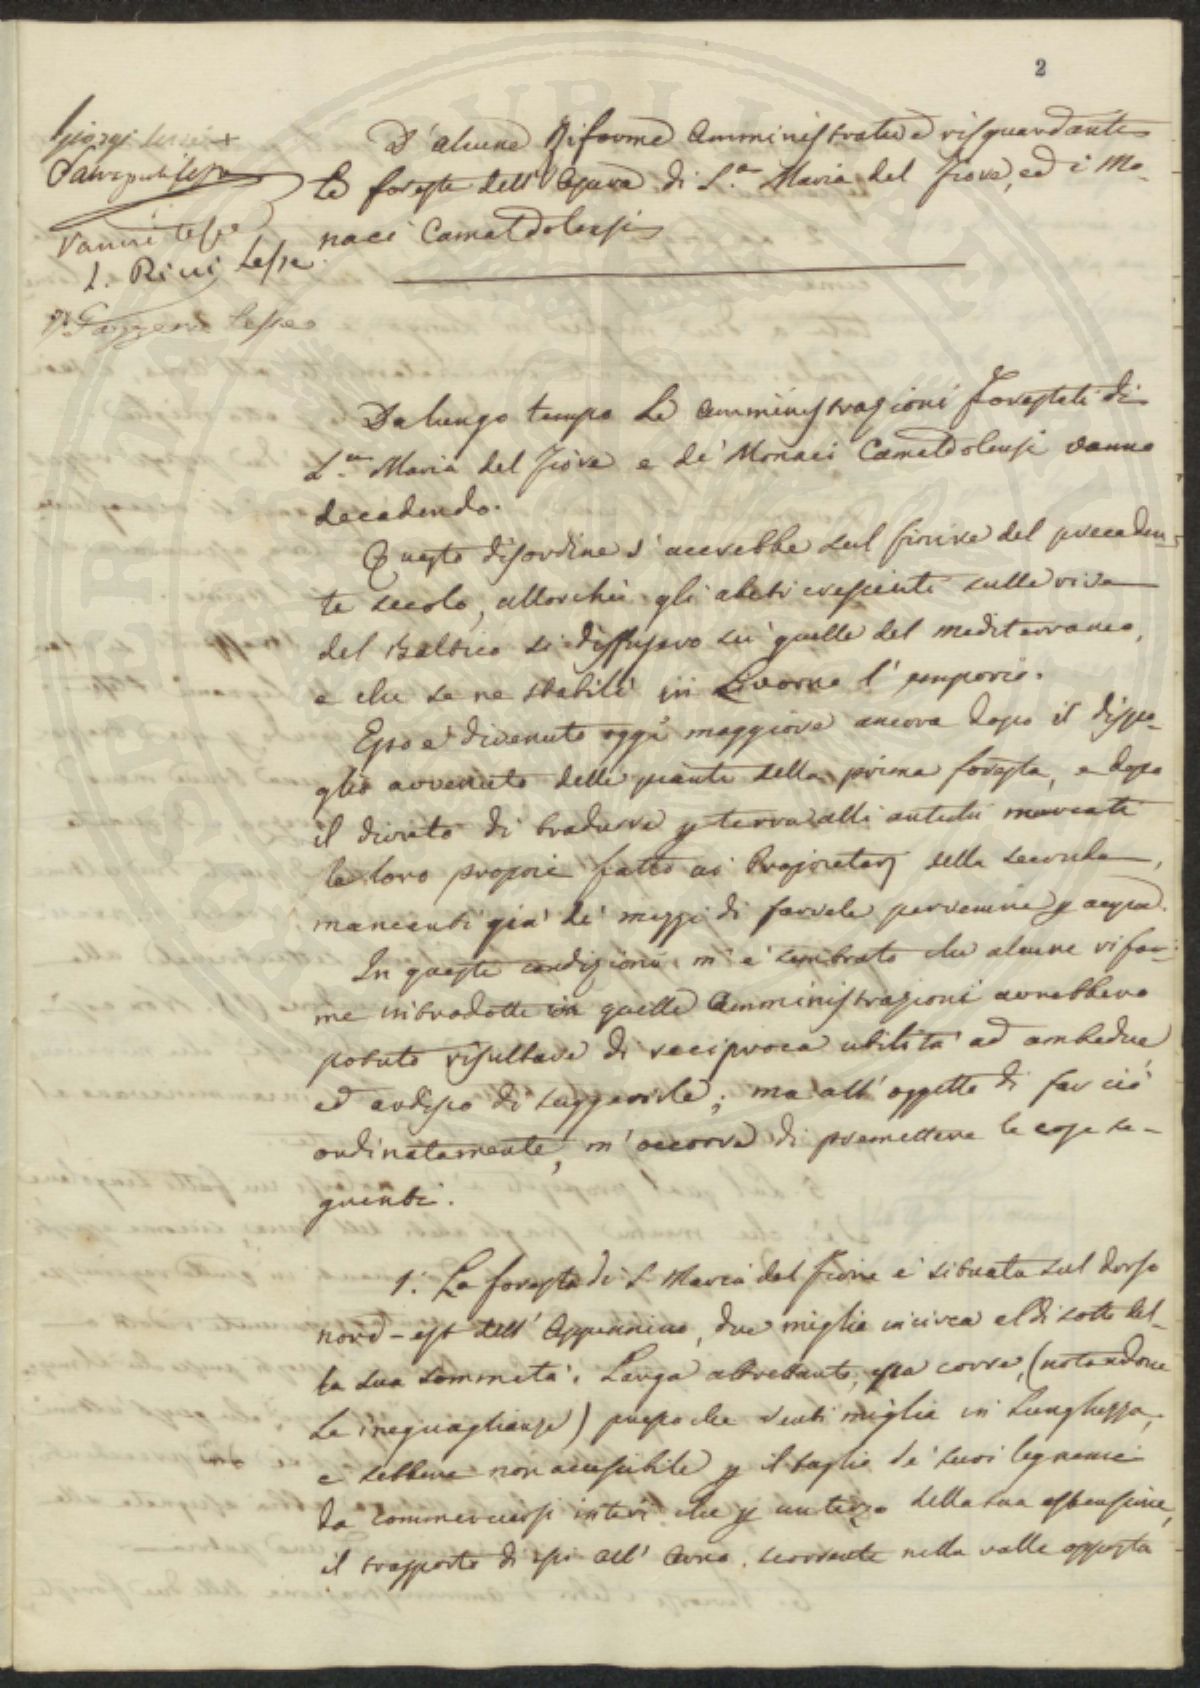 2
Giorgi lesse
Vanni lesse
L. Rivi lesse
Gazzeri lesse
D'alcune Riforme Amministrative risguardanti
le foreste dell'Opera di S.a Maria del Fiore, ed i Mo-
naci Camaldolensi
Da lungo tempo le Amministrazioni Forestali di
S.a Maria del Fiore e de' Monaci Camaldolensi vanno
decadendo.
Questo disordine s'accrebbe sul finire del preceden-
te secolo, allorchè gli abeti crescenti sulle rive
del Baltico si diffusero su quelle del mediterraneo,
e che se ne stabilì in Livorno l'emporio.
Esso è divenuto oggi maggiore ancora dopo il dispo-
glio avvenuto delle piante della prima foresta, e dopo
il divieto di tradurre p terra alli antichi mercati
le loro proprie fatto ai Proprietarj della seconda,
mancanti già de' mezzi di farvele pervenire p acqua.
In queste condizioni m'è sembrato che alcune rifor-
me introdotte in quelle Amministrazioni avrebbero
potuto risultare di reciproca utilità ad ambedue
ed ardisco di suggerirle; ma all'oggetto di far ciò
ordinatamente, m'occorre di premettere le cose se-
guenti.
1.° La foresta di S. Maria del Fiore è situata sul dorso
nord-est dell'Appennino, due miglia incirca al di sotto del-
la sua sommità. Larga altrettanto, essa corre, (notandone
le ineguaglianze) pressoche venti miglia in lunghezza,
e sebbene non accessibile p il taglio de' suoi legnami
da commerciarsi interi che p un terzo della sua estensione,
il trasporto di essi all'Arno, scorrente nella valle opposta